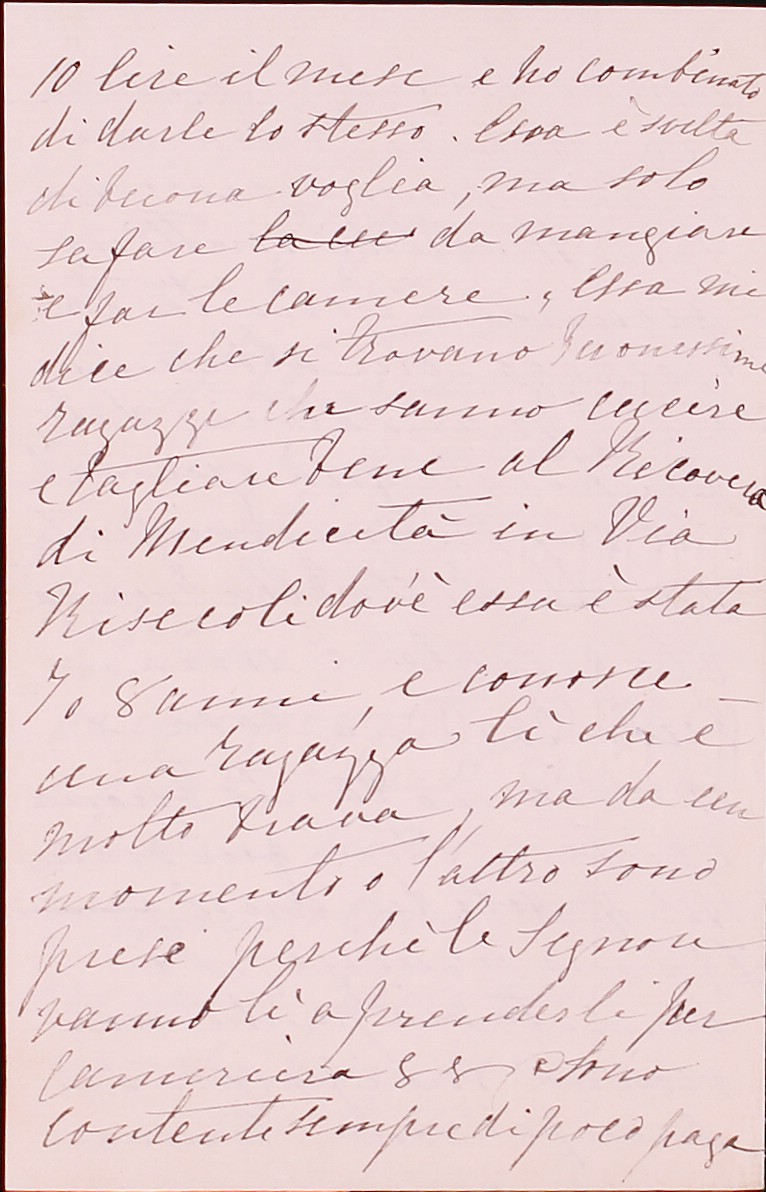 10 lire il mese e ho combinato
di darle lo stesso. Essa è svelta
di buona voglia, ma solo
sa fare la cu da mangiare
e far le camere. Essa mi
dice che si trovano buonissime
ragazze che sanno cucire
e tagliare bene al Ricovero
di Mendicità in Via
dov'è essa è stata
7 o 8 anni, e conosce
una ragazza lì che è
molto brava, ma da un
momento o l'altro sono
prese perchè le Signore
vanno lì a prenderli per
cameriera & & e sono
contente sempre di poco paga